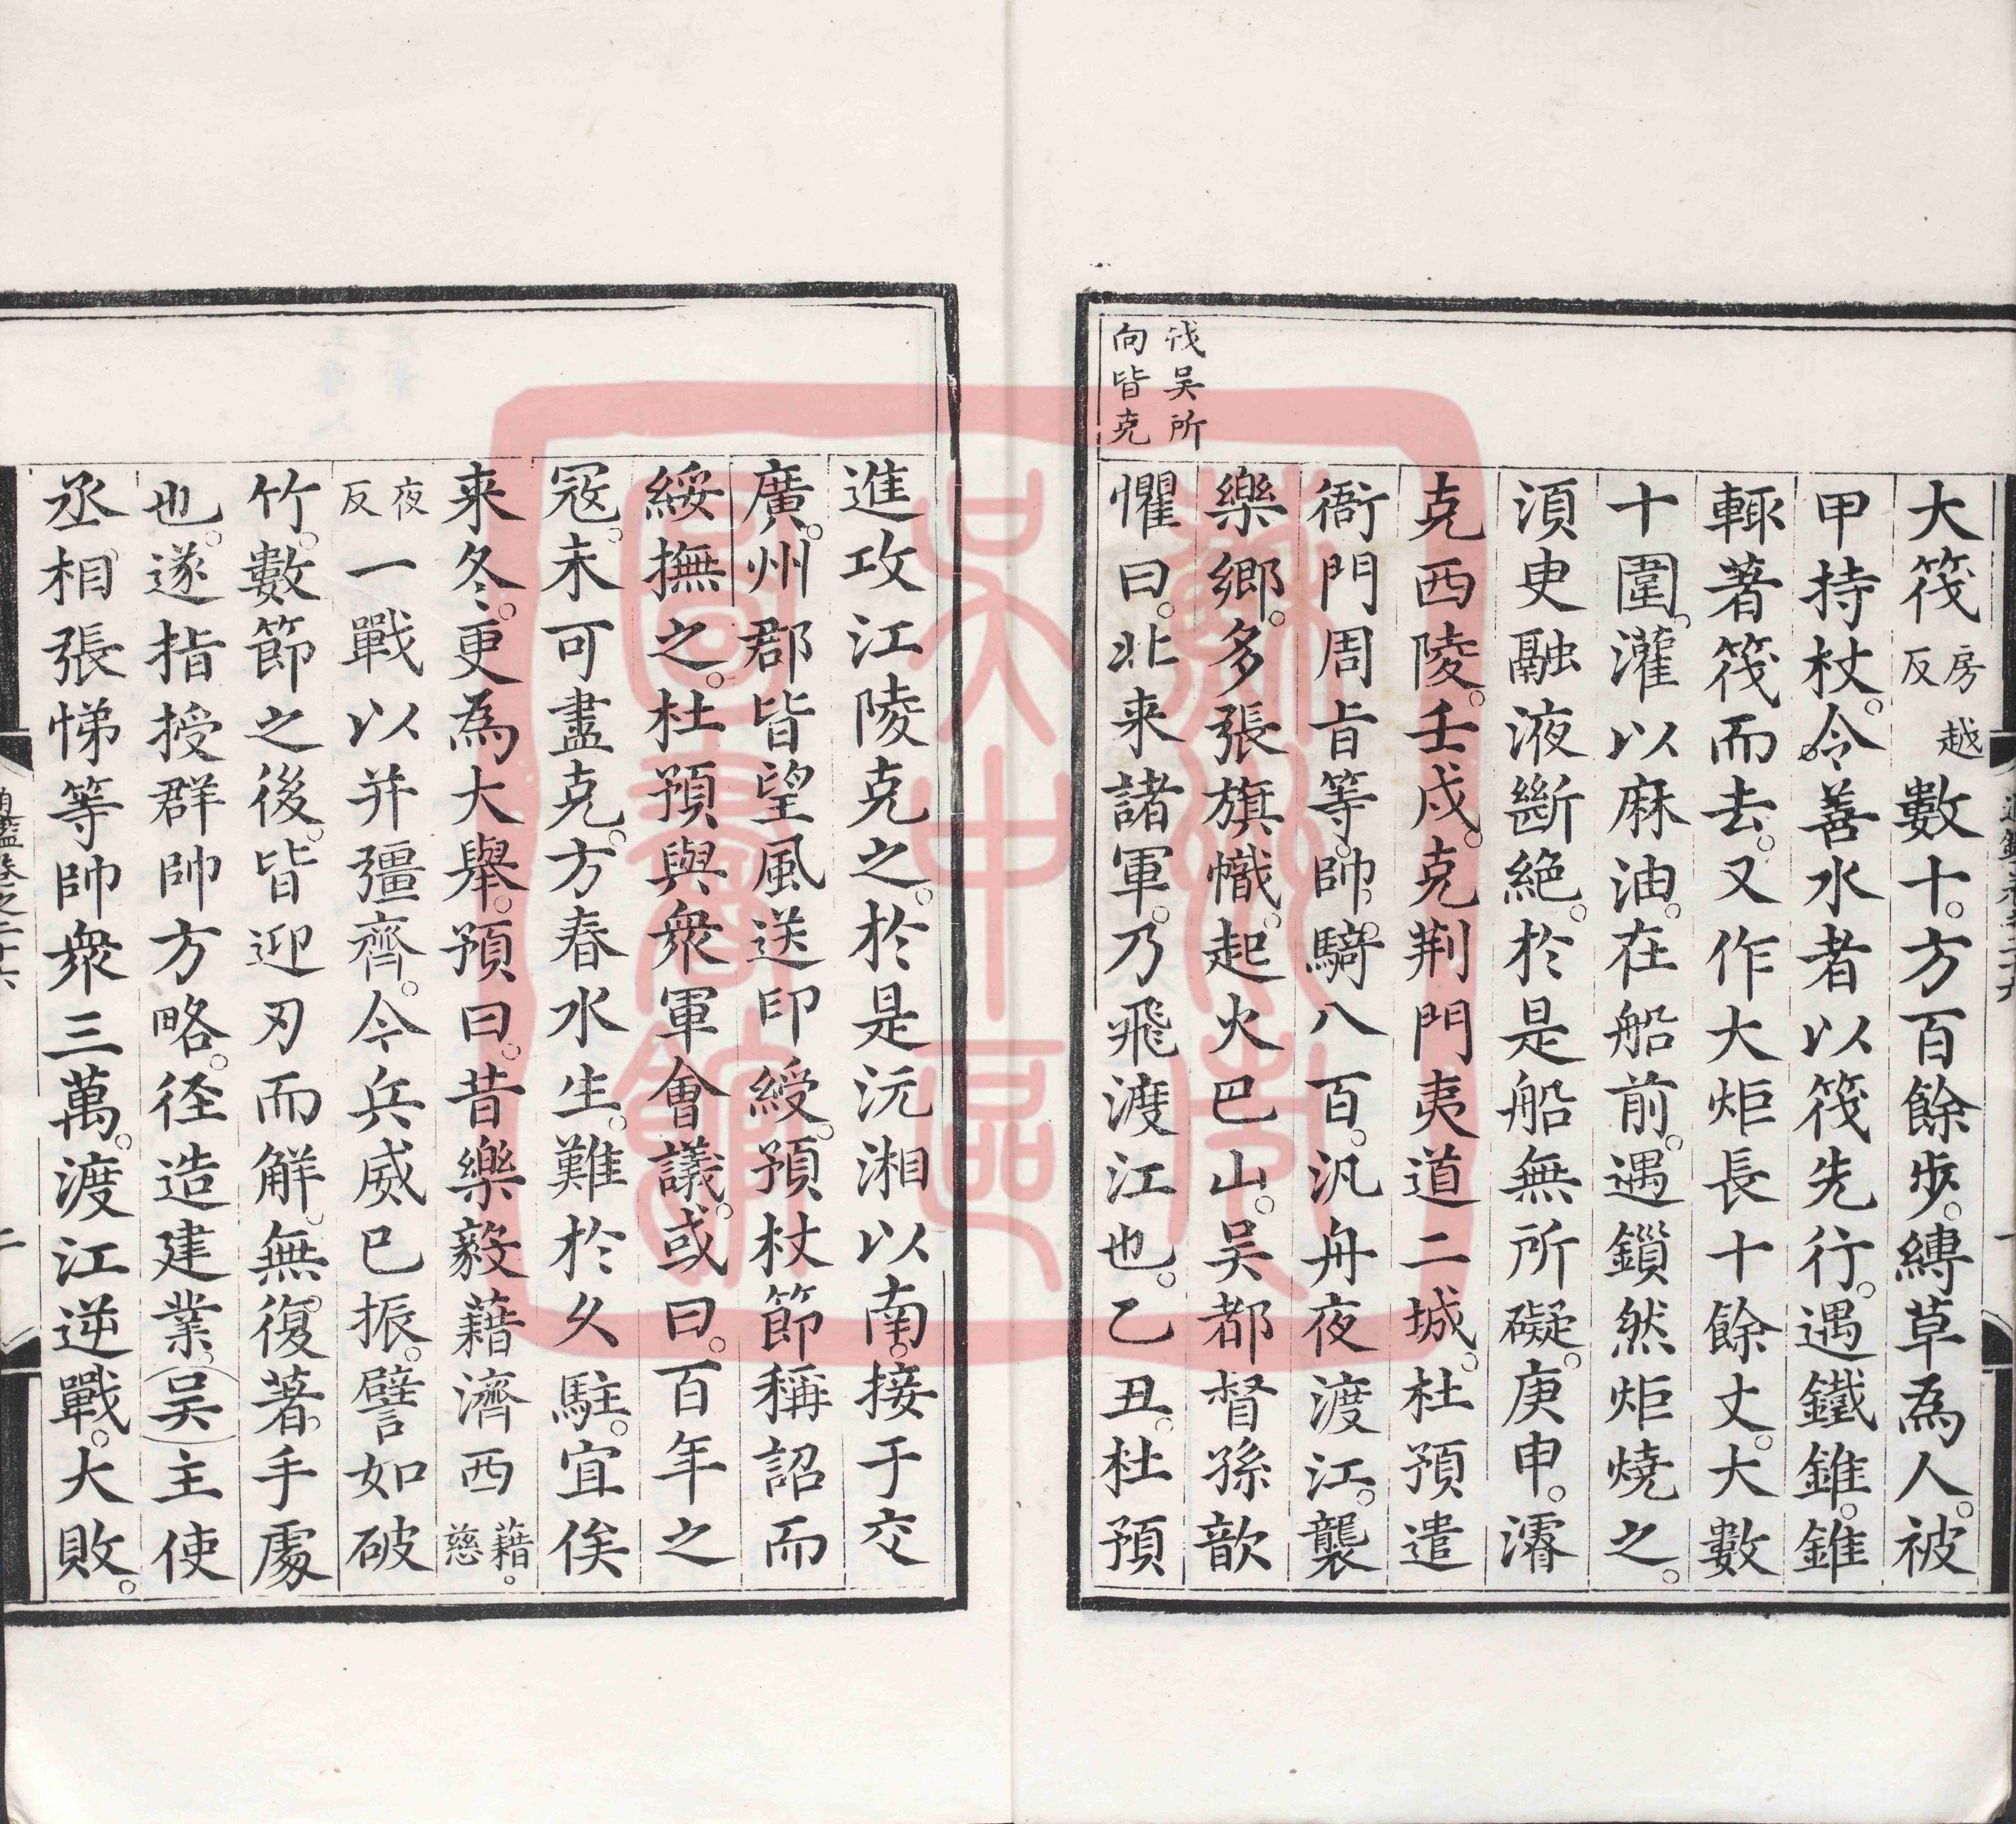 伐吴所
向皆克
大筏房越反數十。方百餘步。縳草為人。被
甲持杖。令善水者以筏先行。遇鐵錐。錐
輒著筏而去。又作大炬長十餘丈。大數
十圍。灌以麻油。在船前。遇鎻然炬燒之。
湏㬰融液斷絶。於是船無所礙。庚申。濬
克西陵。壬戌。克荆門夷道二城。杜預遣
衙門周㫖等帥。騎八百。汎舟夜渡江。襲
樂鄉。多張旗幟。起火巴山。吴都督孫歆
懼曰。北来諸軍。乃飛渡江也。乙丑。杜預
進攻江陵克之。於是沅湘以南。接于交
廣。州郡皆望風送印綬。預杖節稱詔而
綏撫之。杜預與衆軍會議。或曰。百年之
冦。未可盡克。方春水生。難於久駐。宜俟
来冬。更為大舉。預曰。昔樂毅藉濟西藉。慈
夜反一戰以并彊齊。今兵威已振。譬如破
竹。數節之後。皆迎刃而解。無復著手處
也。遂指授群帥方略。徑造建業。吴主使
丞相張悌等帥衆三萬。渡江逆戰。大敗。